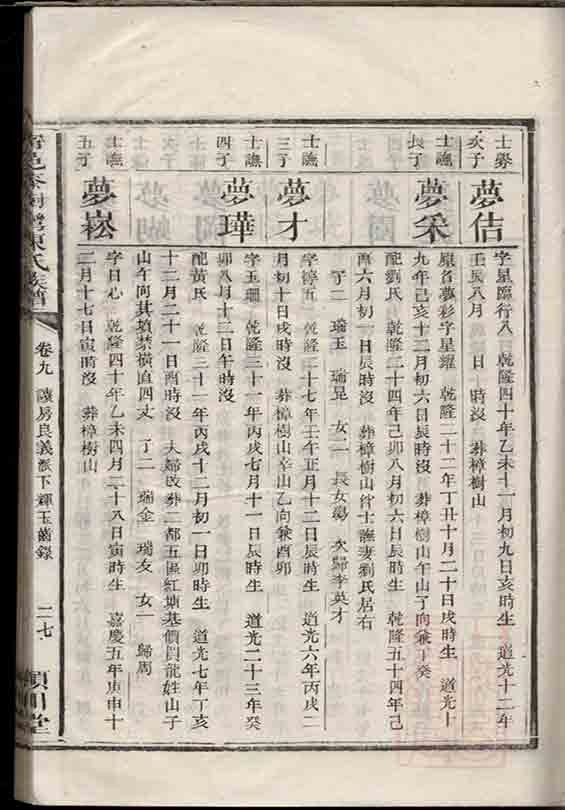 士
次子
夢佶
字星臨行八 乾隆四十年乙未十一月初九日亥時生 道光十二年
壬辰八月 日 時沒 葬樟樹山
士譕
長子
夢采
原名夢彩字星耀 乾隆二十二年丁丑十月二十日戌時生 道光十
九年己亥十二月初六日辰時沒 葬樟樹山午山丁向兼丁癸
配劉氏 乾隆二十四年己卯八月初六日辰時生 乾隆五十四年己
酉六月初一日辰時沒 葬樟樹山 士譕妻劉氏居右
子二 瑞玉 瑞昆 女二 長女殤 次歸李英才
士譕
三子
夢才
字惇五 乾隆二十七年壬午正月十二日辰時生 道光六年丙戌二
月初十日戌時沒 葬樟樹山辛山乙向兼酉卯
士譕
四子
夢瑋
字玉珊 乾隆三十一年丙戌七月十一日辰時生 道光二十三年癸
卯八月十二日午時沒
配黃氏 乾隆三十一年丙戌十二月初一日卯時生 道光七年丁亥
十二月二十一日酉時沒 夫婦改葬一都五區紅塘基價買龍姓山子
山午向其墳禁橫直四丈 子二 瑞金 瑞友 女一 歸周
士譕
五子
夢崧
字日心 乾隆四十年乙未四月二十八日寅時生 嘉慶五年庚申十
二月十七日寅時沒 葬樟樹山
陳氏族譜
卷九 讓易良義派下輝玉齒錄
二七
潁川堂